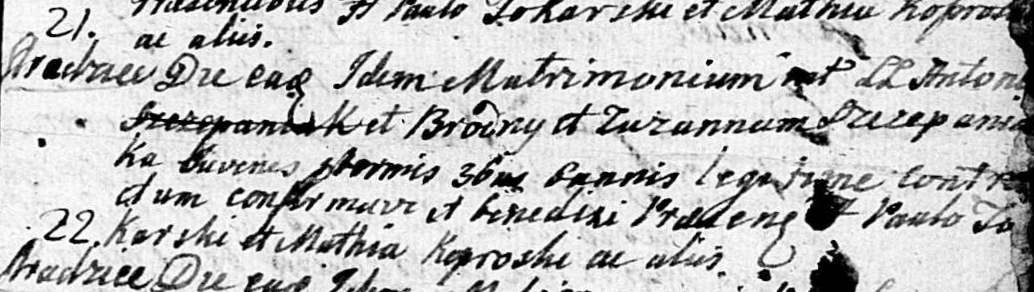 Praesentibus H Paulo Tokarski et Mathia Koproski
21. ac aliis.
Die eadq Idem Matrimonium int LL Antoni
Szczepaniak et Brodny et Zuzannam Szczepania
ka Iuvenes pormis 3bus bannis legitime contra
ctum confirmavi et benedixi Praeseng H Paulo To
22. Karski et Mathia Koproski ac aliis.
Die eadq Idem